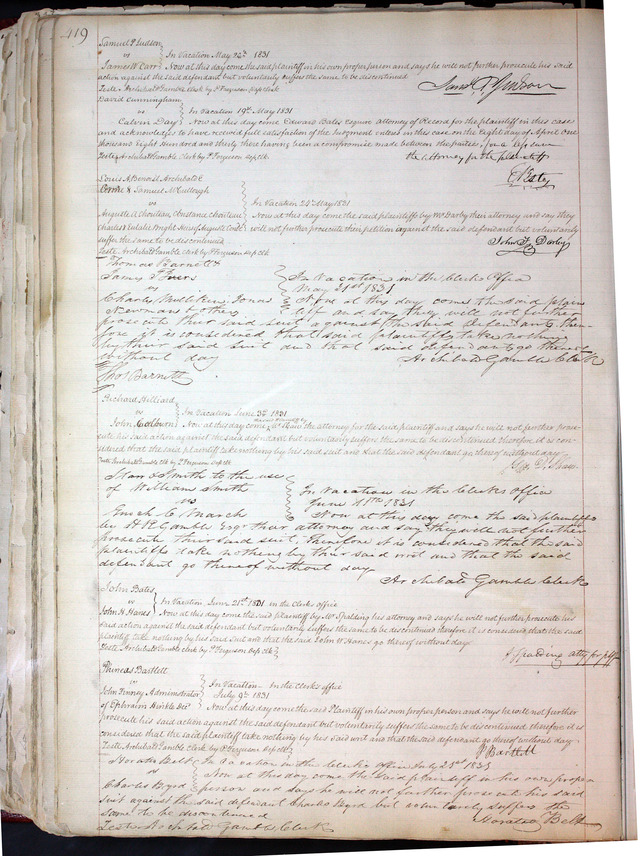 119
Samuel P Judson
vs
James W Carr
In Vacation May 12th 1831
Now at this day come the said plaintiff in his own proper person and says he will not further prosecute his said
action against the said defendant but voluntarily suffers the same to be discontinued
Teste Archibald Gamble Clerk by P Ferguson dep clk
Saml P Judson
David Cunningham
vs
Calvin Day
In Vacation 19th May 1831
Now at this day come Edward Bates esquire Attorney of Record for the plaintiff in this case
and acknowledges to have received full satisfaction of the Judgment entered in this case on the Eight day of April One
thousand eight Hundred and thirty there having been a compromise made between the parties
the attorney for the plaintiff
Teste Archibald Gamble Clerk by P Ferguson dep clk
E Bates
Louis A Benoist Archibald
& Samuel McCullough
vs
Auguste A Chouteau, Chouteau
Charles
In Vacation 24th May 1831
Now at this day come the said plaintiffs by Mr Darby their attorney and say they
will not further prosecute their petition against the said defendant but voluntarily
suffer the same to be discontinued
Teste Archibald Gamble clerk by P Ferguson dep clk
John F Darby
Thomas Barnett &
James
vs
Charles Mulliken, Jonas
Newman & others
In Vacation in the Clerks Office
May 31st 1831
Now at this day come the said plain
tiff and say they will not further
prosecute their said suit against the said defendants, there-
fore it is considered that said plaintiffs take nothing
by their said suit and that said defendants go thereof
without day
Archibald Gamble Clerk
Thos Barnett
Richard Hilliard
vs
John Colburn
In Vacation June 3d 1831
Now at this day come Mr Shaw the attorney for the said plaintiff and says he will not further prose-
cute his said action against the said defendant but voluntarily suffers the same to be discontinued therefore it is con-
sidered that the said plaintiff take nothing by his said suit and that the said defendant go thereof without day
Teste Archibald Gamble clk by P Ferguson dep clk
Shaw
Starr & Smith to the use
of William Smith
vs
Enoch C March
In Vacation in the Clerks Office
June 17th 1831
Now at this day come the said plaintiffs
by H R Gamble Esqr their attorney and say they will not further
prosecute their said suit, therefore it is considered that the said
plaintiffs take nothing by their said writ and that the said
defendant go thereof without day
Archibald Gamble Clerk
John Bates
vs
John H Hanes
In Vacation June 21st 1831 in the clerks office
Now at this day come the said plaintiff by Mr Spalding his attorney and says he will not further prosecute his
said action against the said defendant but voluntarily suffers the same to be discontinued therefore it is considered that the said
plaintiff take nothing by his said suit and that the said John H Hanes go thereof without day
Teste Archibald Gamble clerk by P Ferguson dep clk
Spalding atty for plff
Phineas Bartlett
vs
John Finney Administrator
of Ephraim Hinkle Decd
In Vacation in the Clerks office
July 9th 1831
Now at this day come the said Plaintiff in his own proper person and says he will not further
prosecute his said action against the said defendant but voluntarily suffers the same to be discontinued therefore it is
considered that the said plaintiff take nothing by his said writ and that the said defendant go thereof without day
Teste Archibald Gamble clerk by P Ferguson dep clk
P Bartlett
Horatio Belt
vs
Charles Byrd
In Vacation in the Clerks Office July 23rd 1831
Now at this day come the said plaintiff in his own proper
person and says he will not further prosecute his said
suit against the said defendant Charles Byrd but voluntarily suffers the
same to be discontinued
Teste Archibald Gamble Clerk
Horatio Belt